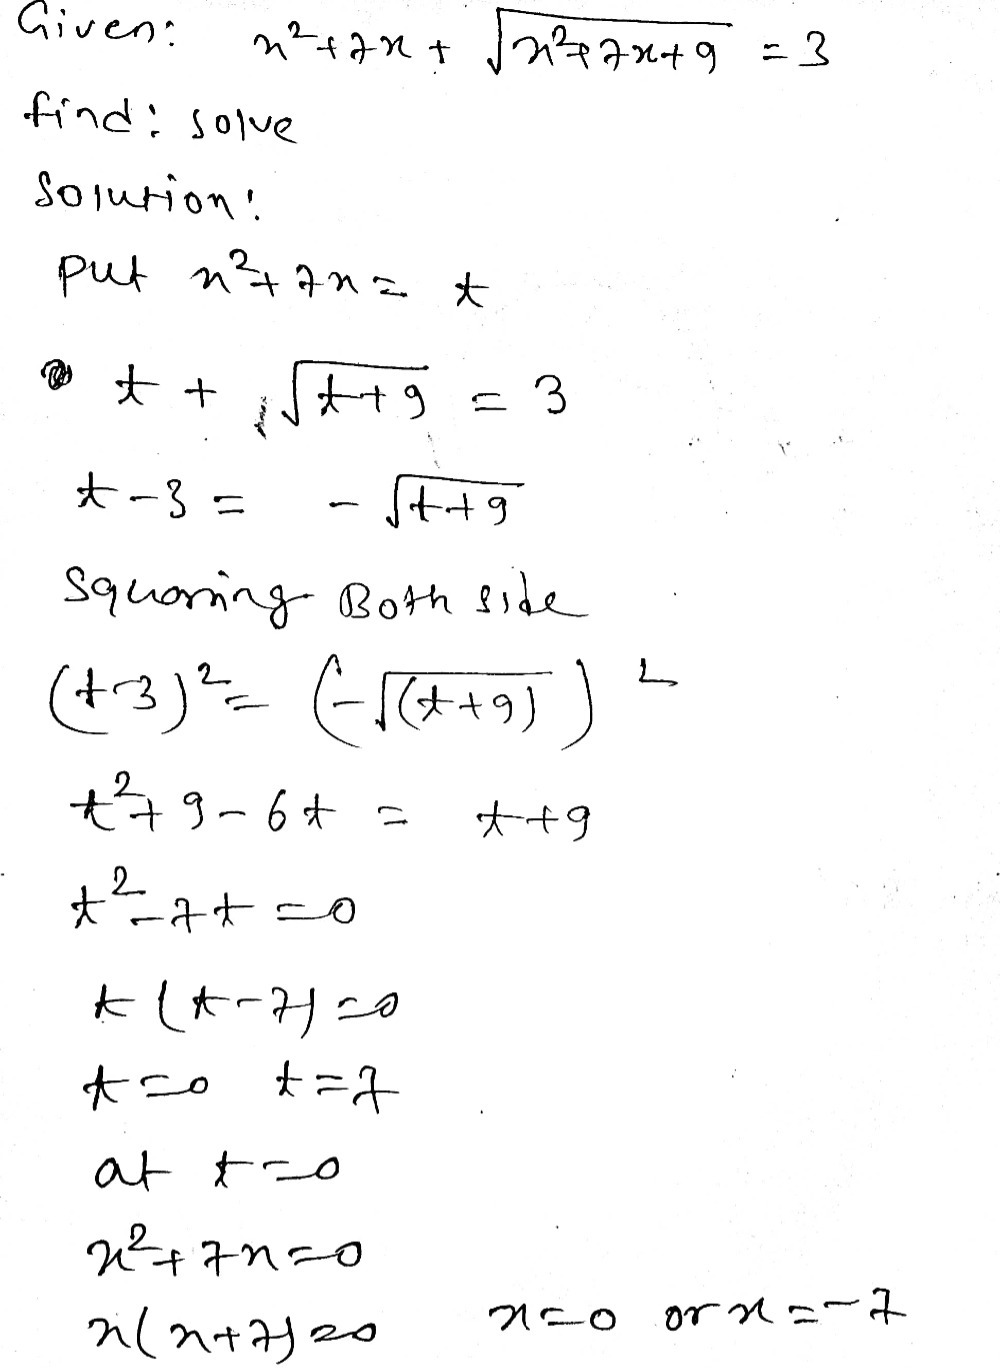 Given: x²+7x + √x²+7x+9 = 3
find: solve
Solution:
put x²+7x = t
t + √t+9 = 3
t-3 = - √t+9
Squaring Both side
(t-3)² = (-√(t+9))²
t²+9-6t = t+9
t²-7t=0
t(t-7)=0
t=0 t=7
at t=0
x²+7x=0
x(x+7)=0 x=0 or x=-7